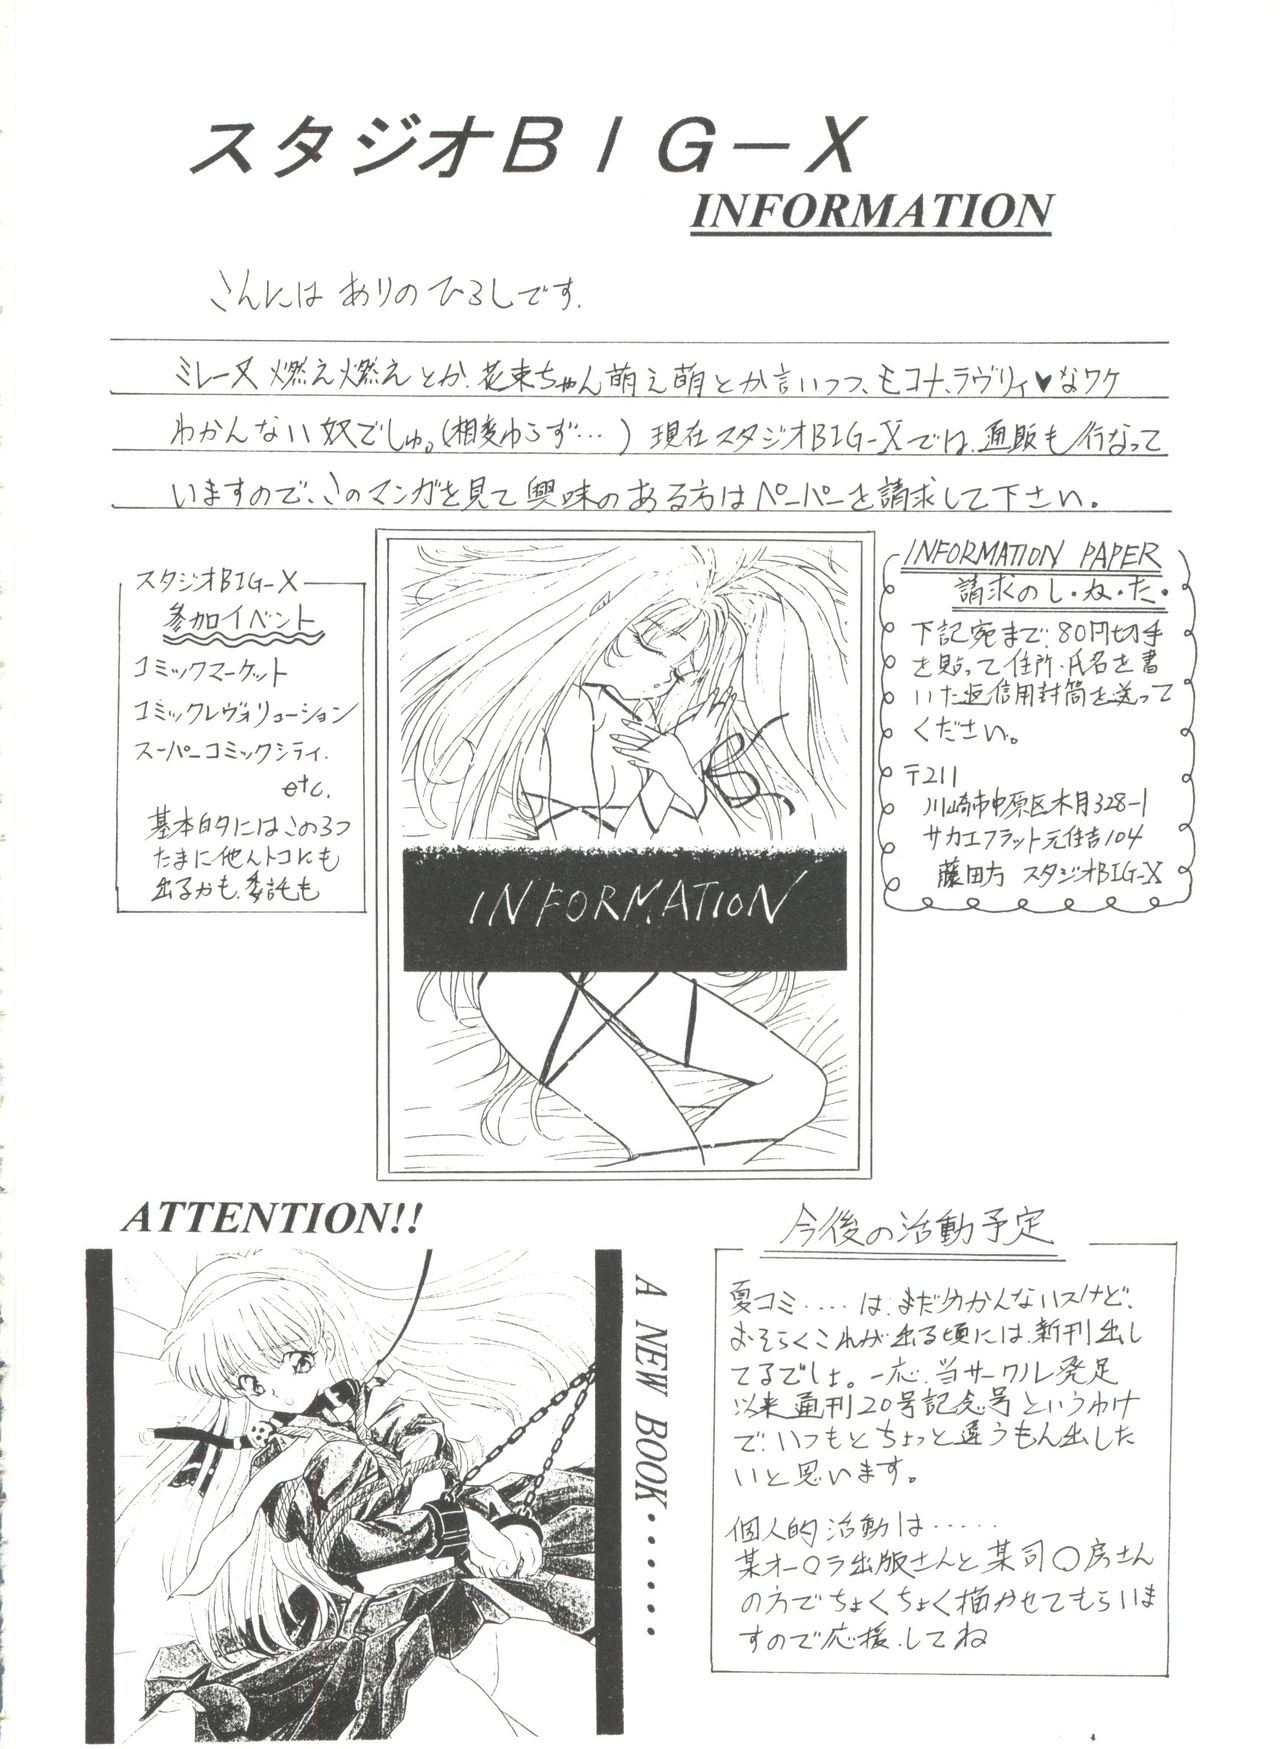 スタジオBIG-X
INFORMATION
こんにちは ありのひろしです.
ミレーヌ燃え燃えとか、花束ちゃん萌え萌とか言いつつ、モコナ、ラヴリィ♥なワケ
わかんない奴でしゅ。(相変わらず…)現在スタジオBIG-Xでは、通販も行なって
いますので、このマンガを見て興味のある方はペーパーを請求して下さい。
スタジオBIG-X
参加イベント
コミックマーケット
コミックレヴォリューション
スーパーコミックシティ.
etc.
基本的にはこの3つ
たまに他んトコにも
出るかも.委託も
INFORMATION
INFORMATION PAPER
請求のし・ね・た・
下記宛まで、80円切手
を貼って住所・氏名を書
いた返信用封筒を送って
ください。
〒211
川崎市中原区木月328-1
サカエフラット元住吉104
藤田方 スタジオBIG-X
ATTENTION!!
A NEW BOOK・・・・・・・
今後の活動予定
夏コミ・・・・は、まだ分かんないスけど、
おそらくこれが出る頃には、新刊出し
てるでしょ。一応、当サークル発足
以来通刊20号記念号というわけ
で、いつもとちょっと違うもん出した
いと思います。
個人的活動は……
某オー○ラ出版さんと某司○房さん
の方でちょくちょく描かせてもらいま
すので応援してね